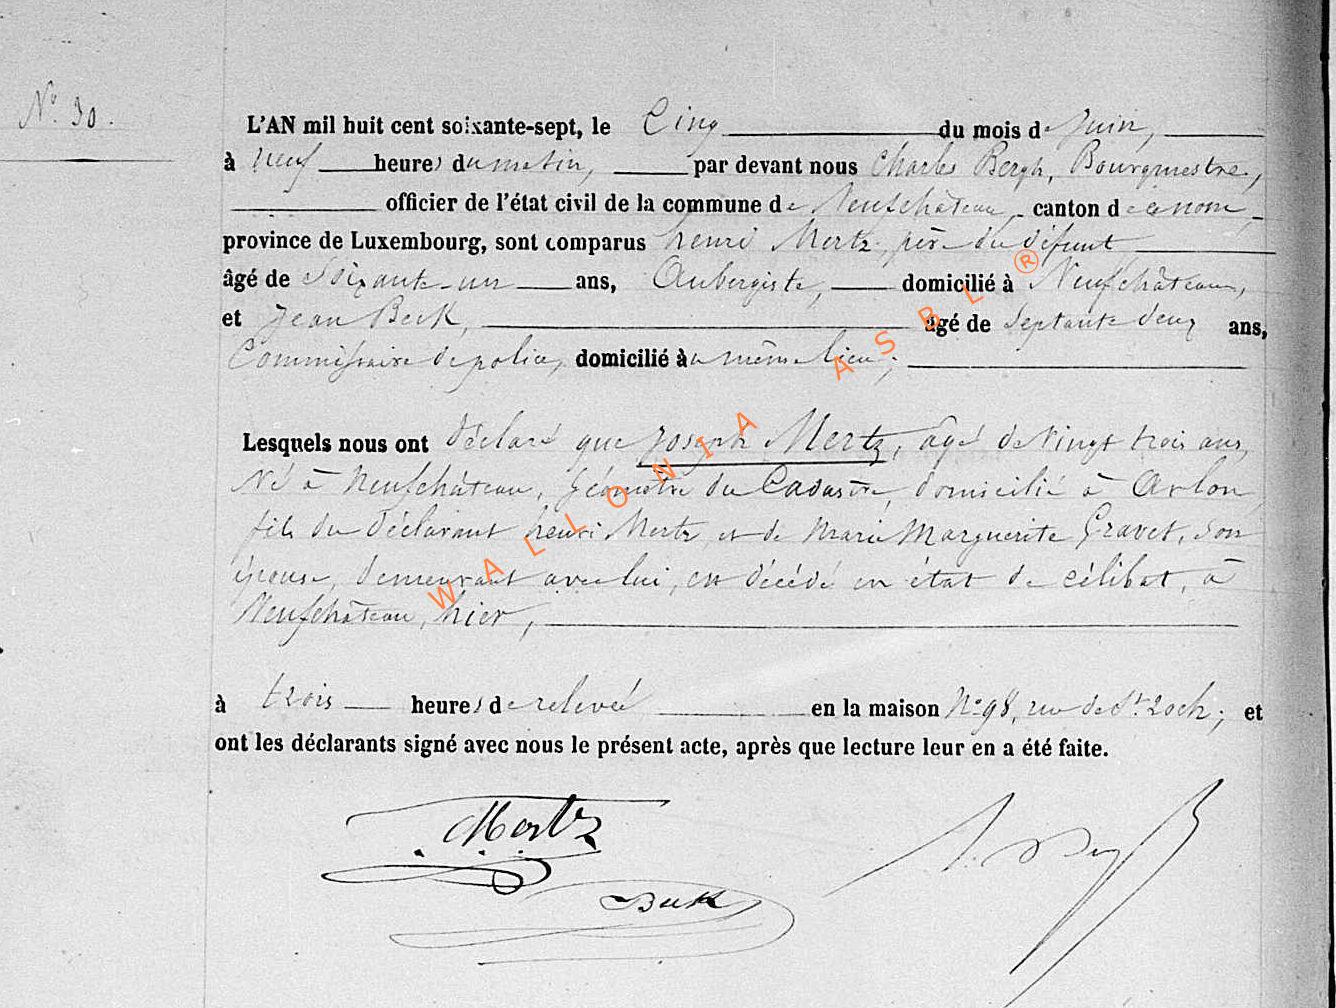 N° 30.
L'AN mil huit cent soixante-sept, le Cinq du mois de Juin,
à neuf heures du matin, par devant nous Charles Bergh, Bourgmestre,
officier de l'état civil de la commune de Neufchâteau, canton de ce nom,
province de Luxembourg, sont comparus henri Mertz, père du défunt
âgé de soixante-un ans, Aubergiste, domicilié à Neufchâteau,
et Jean Beck, âgé de septante deux ans,
Commissaire de police, domicilié au même lieu;
Lesquels nous ont déclaré que Joseph Mertz, âgé de vingt trois ans,
Né à Neufchâteau, Géomètre du Cadastre, domicilié à Arlon,
fils du déclarant henri Mertz et de Marie Marguerite Gravet, son
épouse, demeurant avec lui, est décédé en état de célibat, à
Neufchâteau, hier,
à trois heures de relevée en la maison N° 98, rue de St Roch; et
ont les déclarants signé avec nous le présent acte, après que lecture leur en a été faite.
Mertz
Beck
WALLONIA ASBL ®